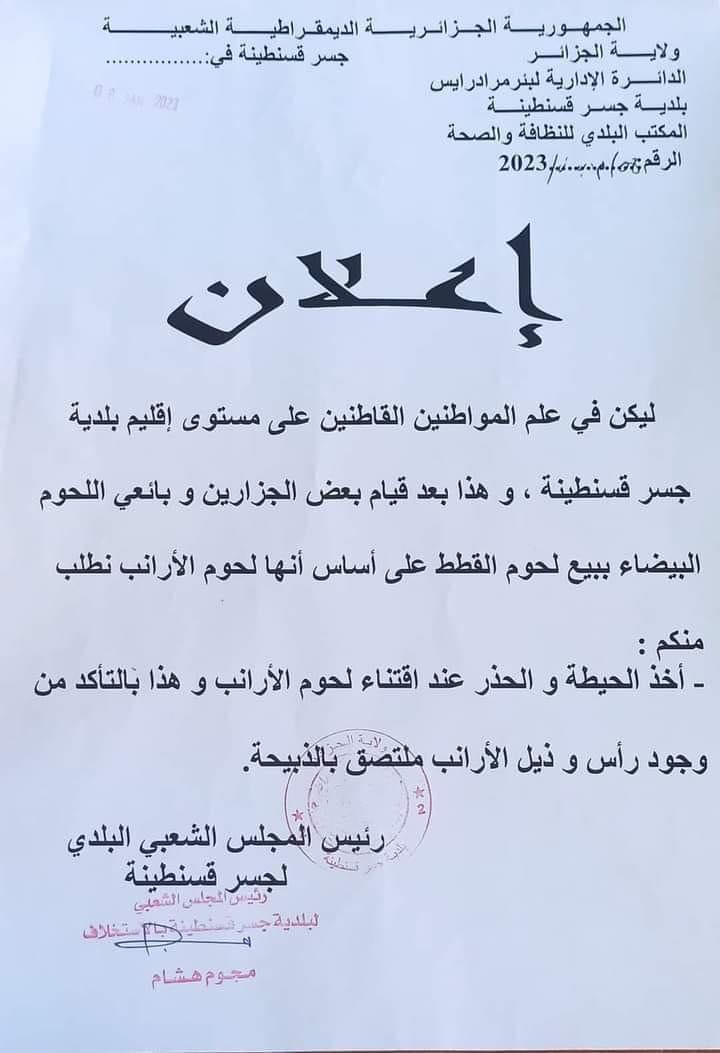 الجمهورية الجزائرية الديمقراطية الشعبية
ولاية الجزائر
جسر قسنطينة في:................
08 JAN 2023
الدائرة الإدارية لبئرمرادرايس
بلدية جسر قسنطينة
المكتب البلدي للنظافة والصحة
الرقم: /2023
إعلان
ليكن في علم المواطنين القاطنين على مستوى إقليم بلدية
جسر قسنطينة ، و هذا بعد قيام بعض الجزارين و بائعي اللحوم
البيضاء ببيع لحوم القطط على أساس أنها لحوم الأرانب نطلب
منكم :
- أخذ الحيطة و الحذر عند اقتناء لحوم الأرانب و هذا بالتأكد من
وجود رأس و ذيل الأرانب ملتصق بالذبيحة.
ولاية الجزائر
2
بلدية جسر قسنطينة
رئيس المجلس الشعبي البلدي
لجسر قسنطينة
رئيس المجلس الشعبي
لبلدية جسر قسنطينة بالاستخلاف
مجوم هشام